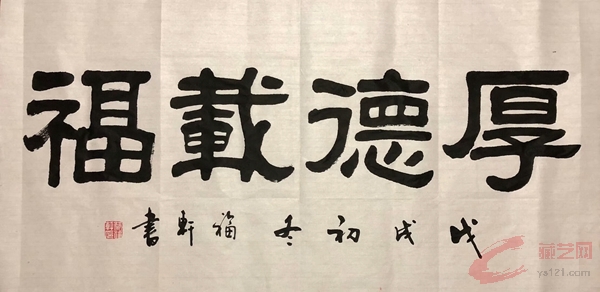 厚德載福
戊戌初冬福軒書
藏艺网
ys121.com